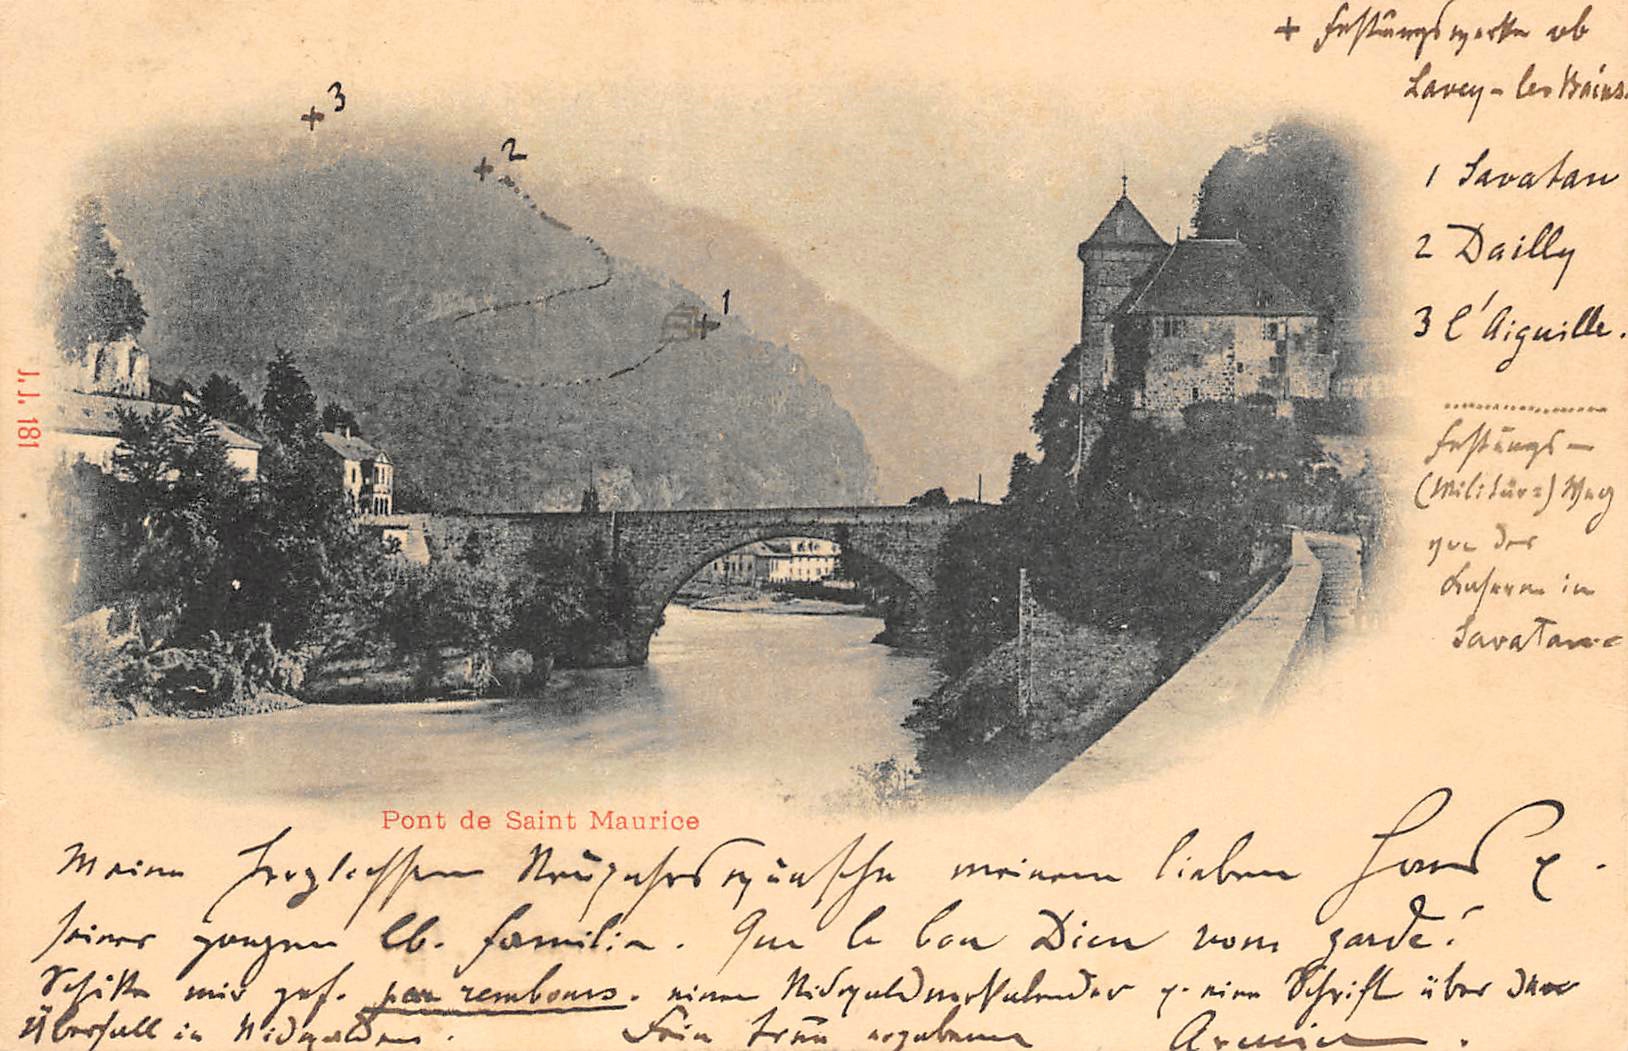 + Festungswerke ob
Lavey-les Bains.
1 Savatan
2 Dailly
3 l'Aiguille.
Festungs-
(Militär=) Weg
von der
Kaserne in
Savatan
3
2
1
J.J. 181
Pont de Saint Maurice
Meine herzlichsten Neujahrswünsche meinem lieben Hans &
seiner ganzen lb. Familie. Que le bon Dieu vous garde!
Schike mir gef. par rembours. einen Nidwaldnerkalender & eine Schrift über den
Überfall in Nidwalden. Dein treu ergebener